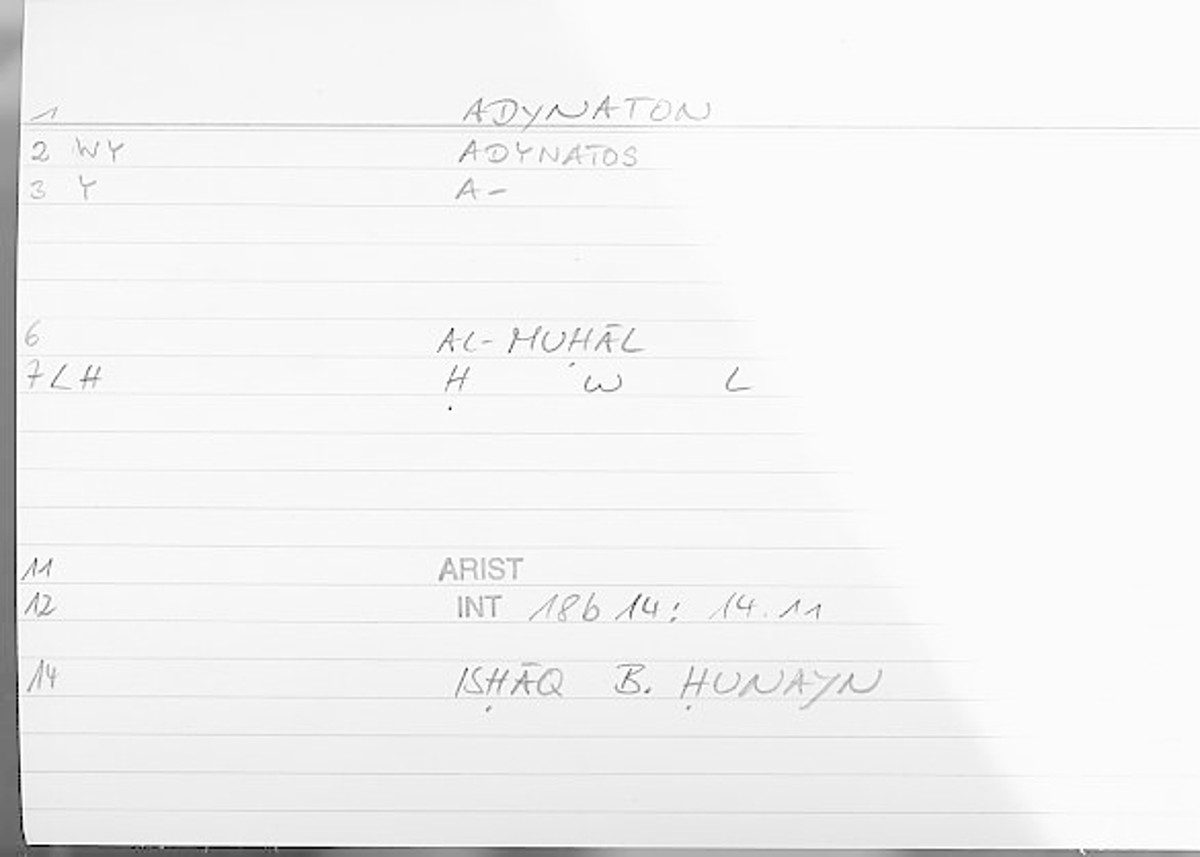 1 ADYNATON
2 WY ADYNATOS
3 Y A-
6 AL-MUḤĀL
7 LH Ḥ W L
11 ARIST
12 INT 18b 14: 14.11
14 ISḤĀQ B. ḤUNAYN